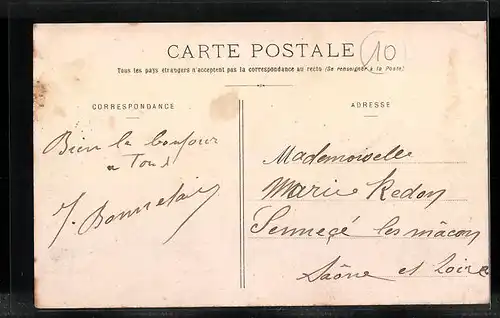 CARTE POSTALE
10
Tous les pays étrangers n'acceptent pas la correspondance au recto (Se renseigner à la Poste)
CORRESPONDANCE
Bien le bonjour
a Tous
J. Bonnetain
ADRESSE
Mademoiselle
Marie Redon
Sennecé les mâcon
Saône et Loire